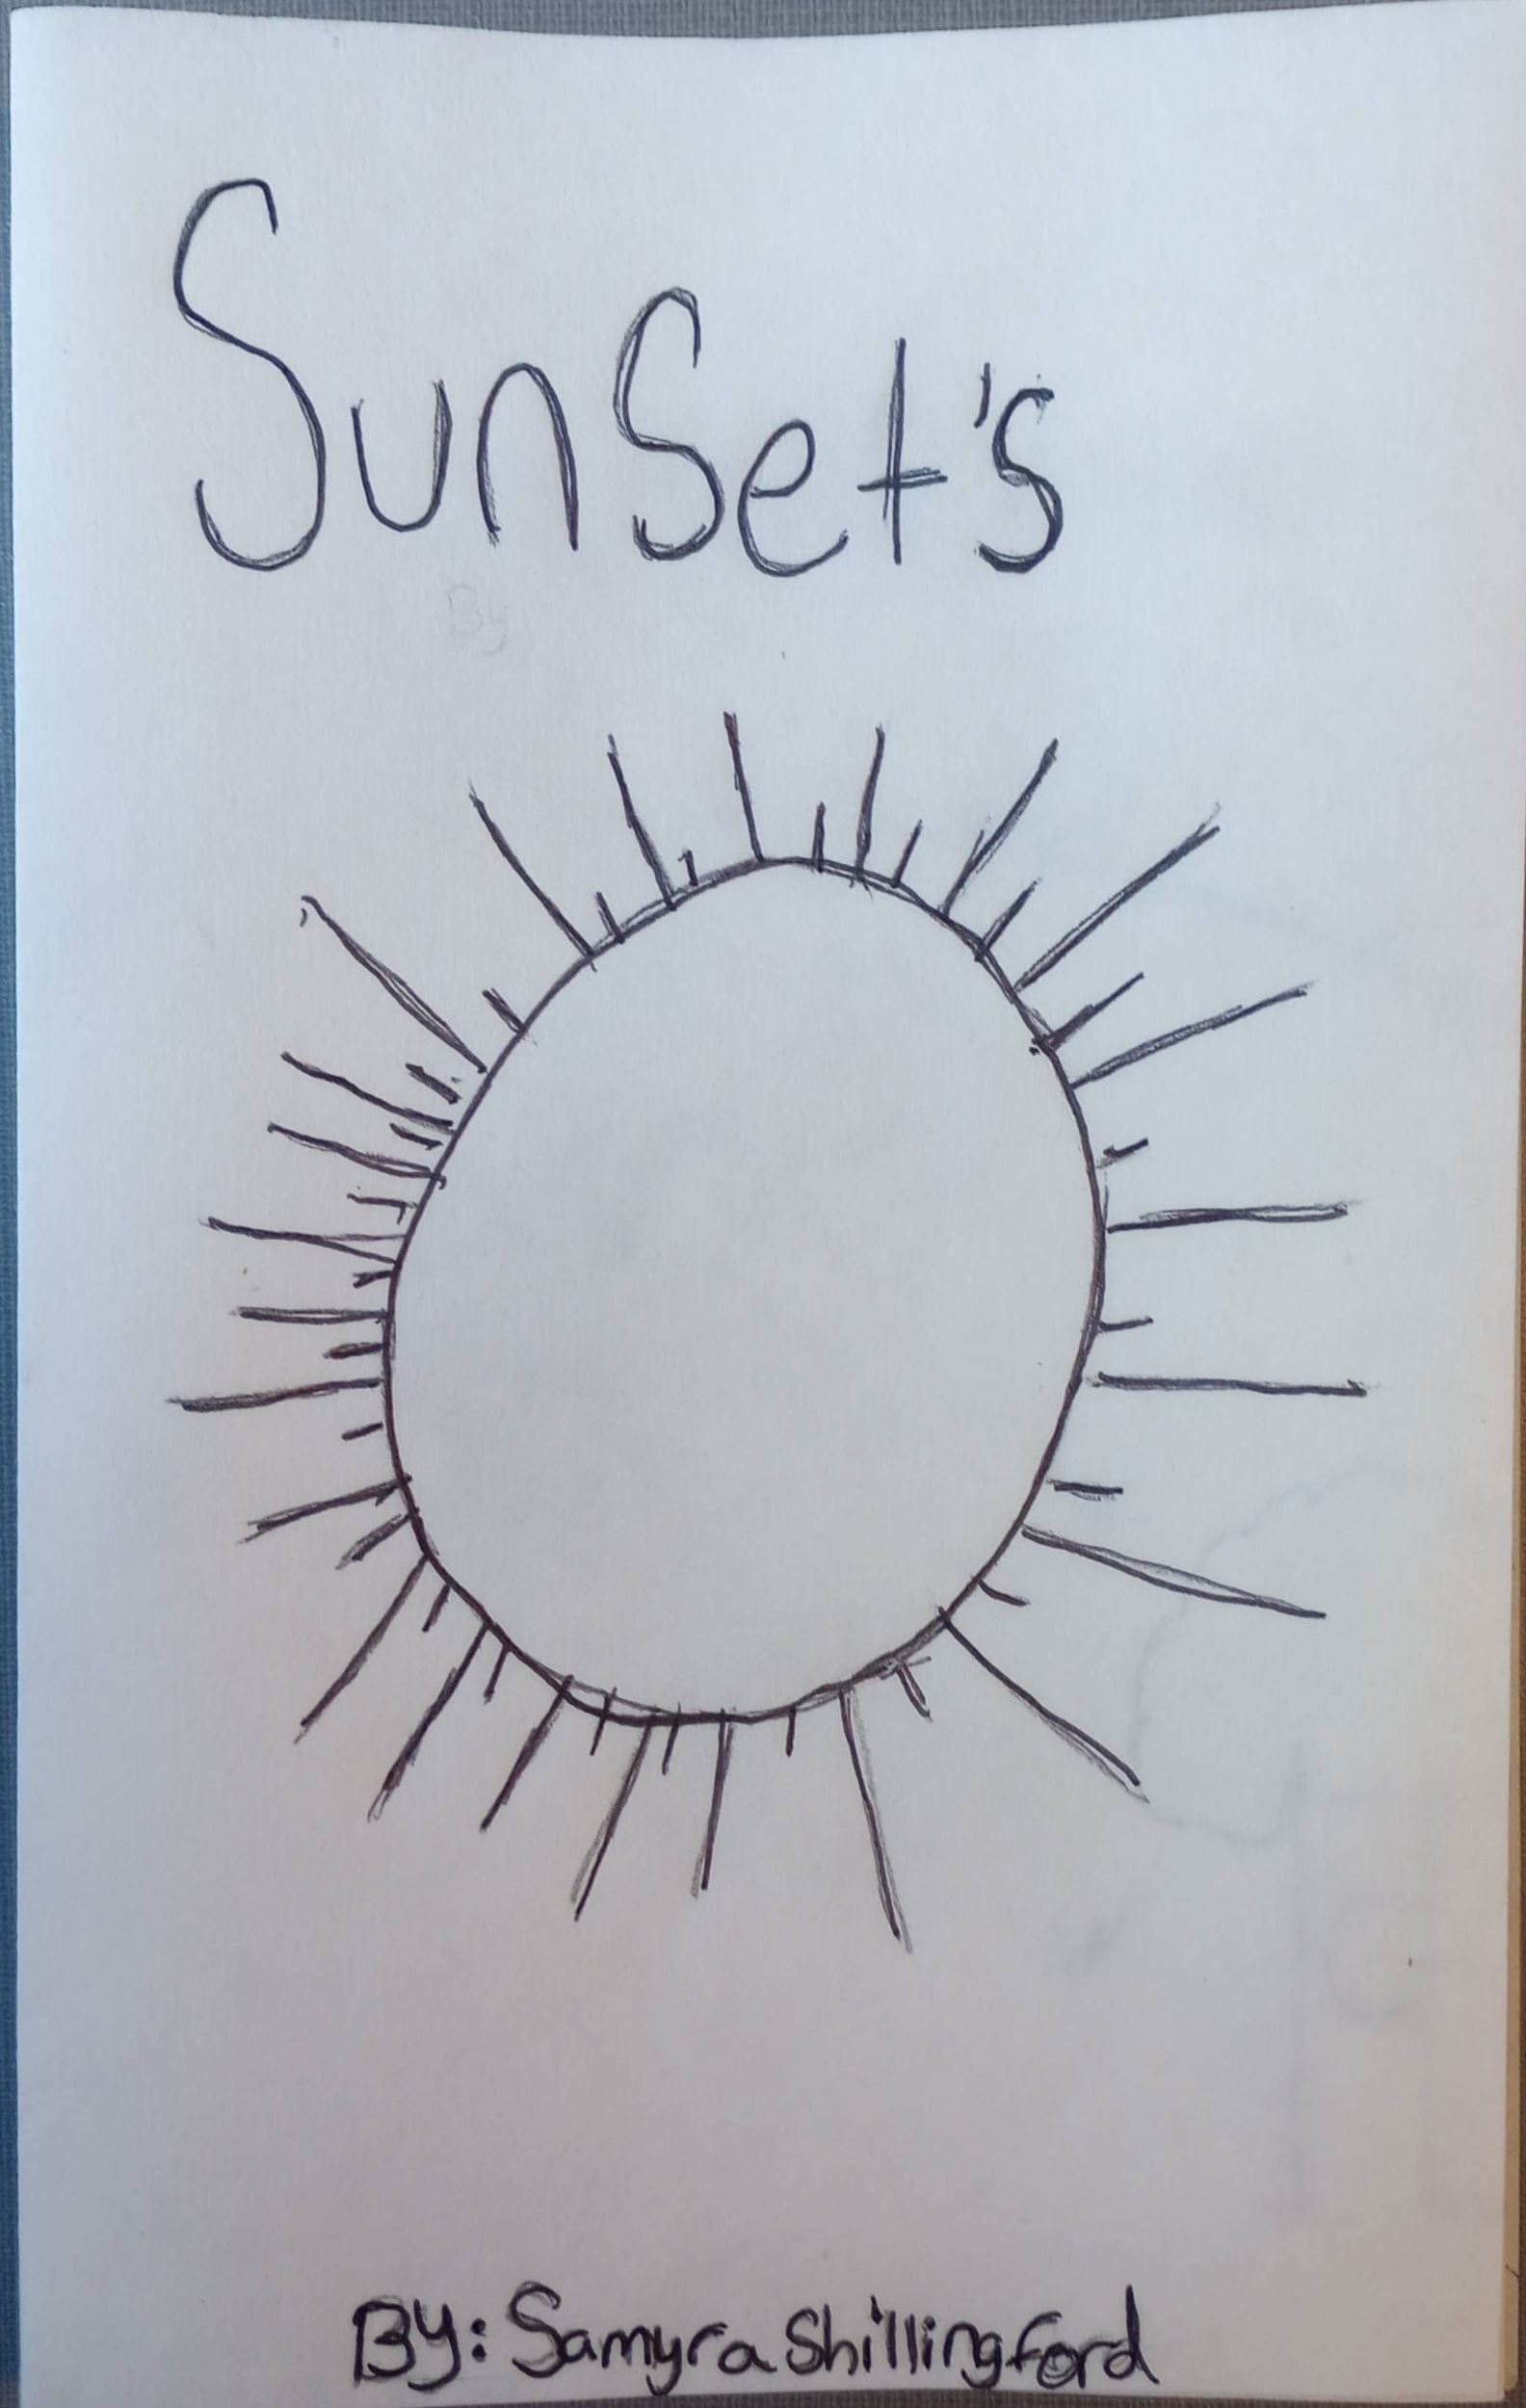 SunSet's
By
By: Samyra Shillingford